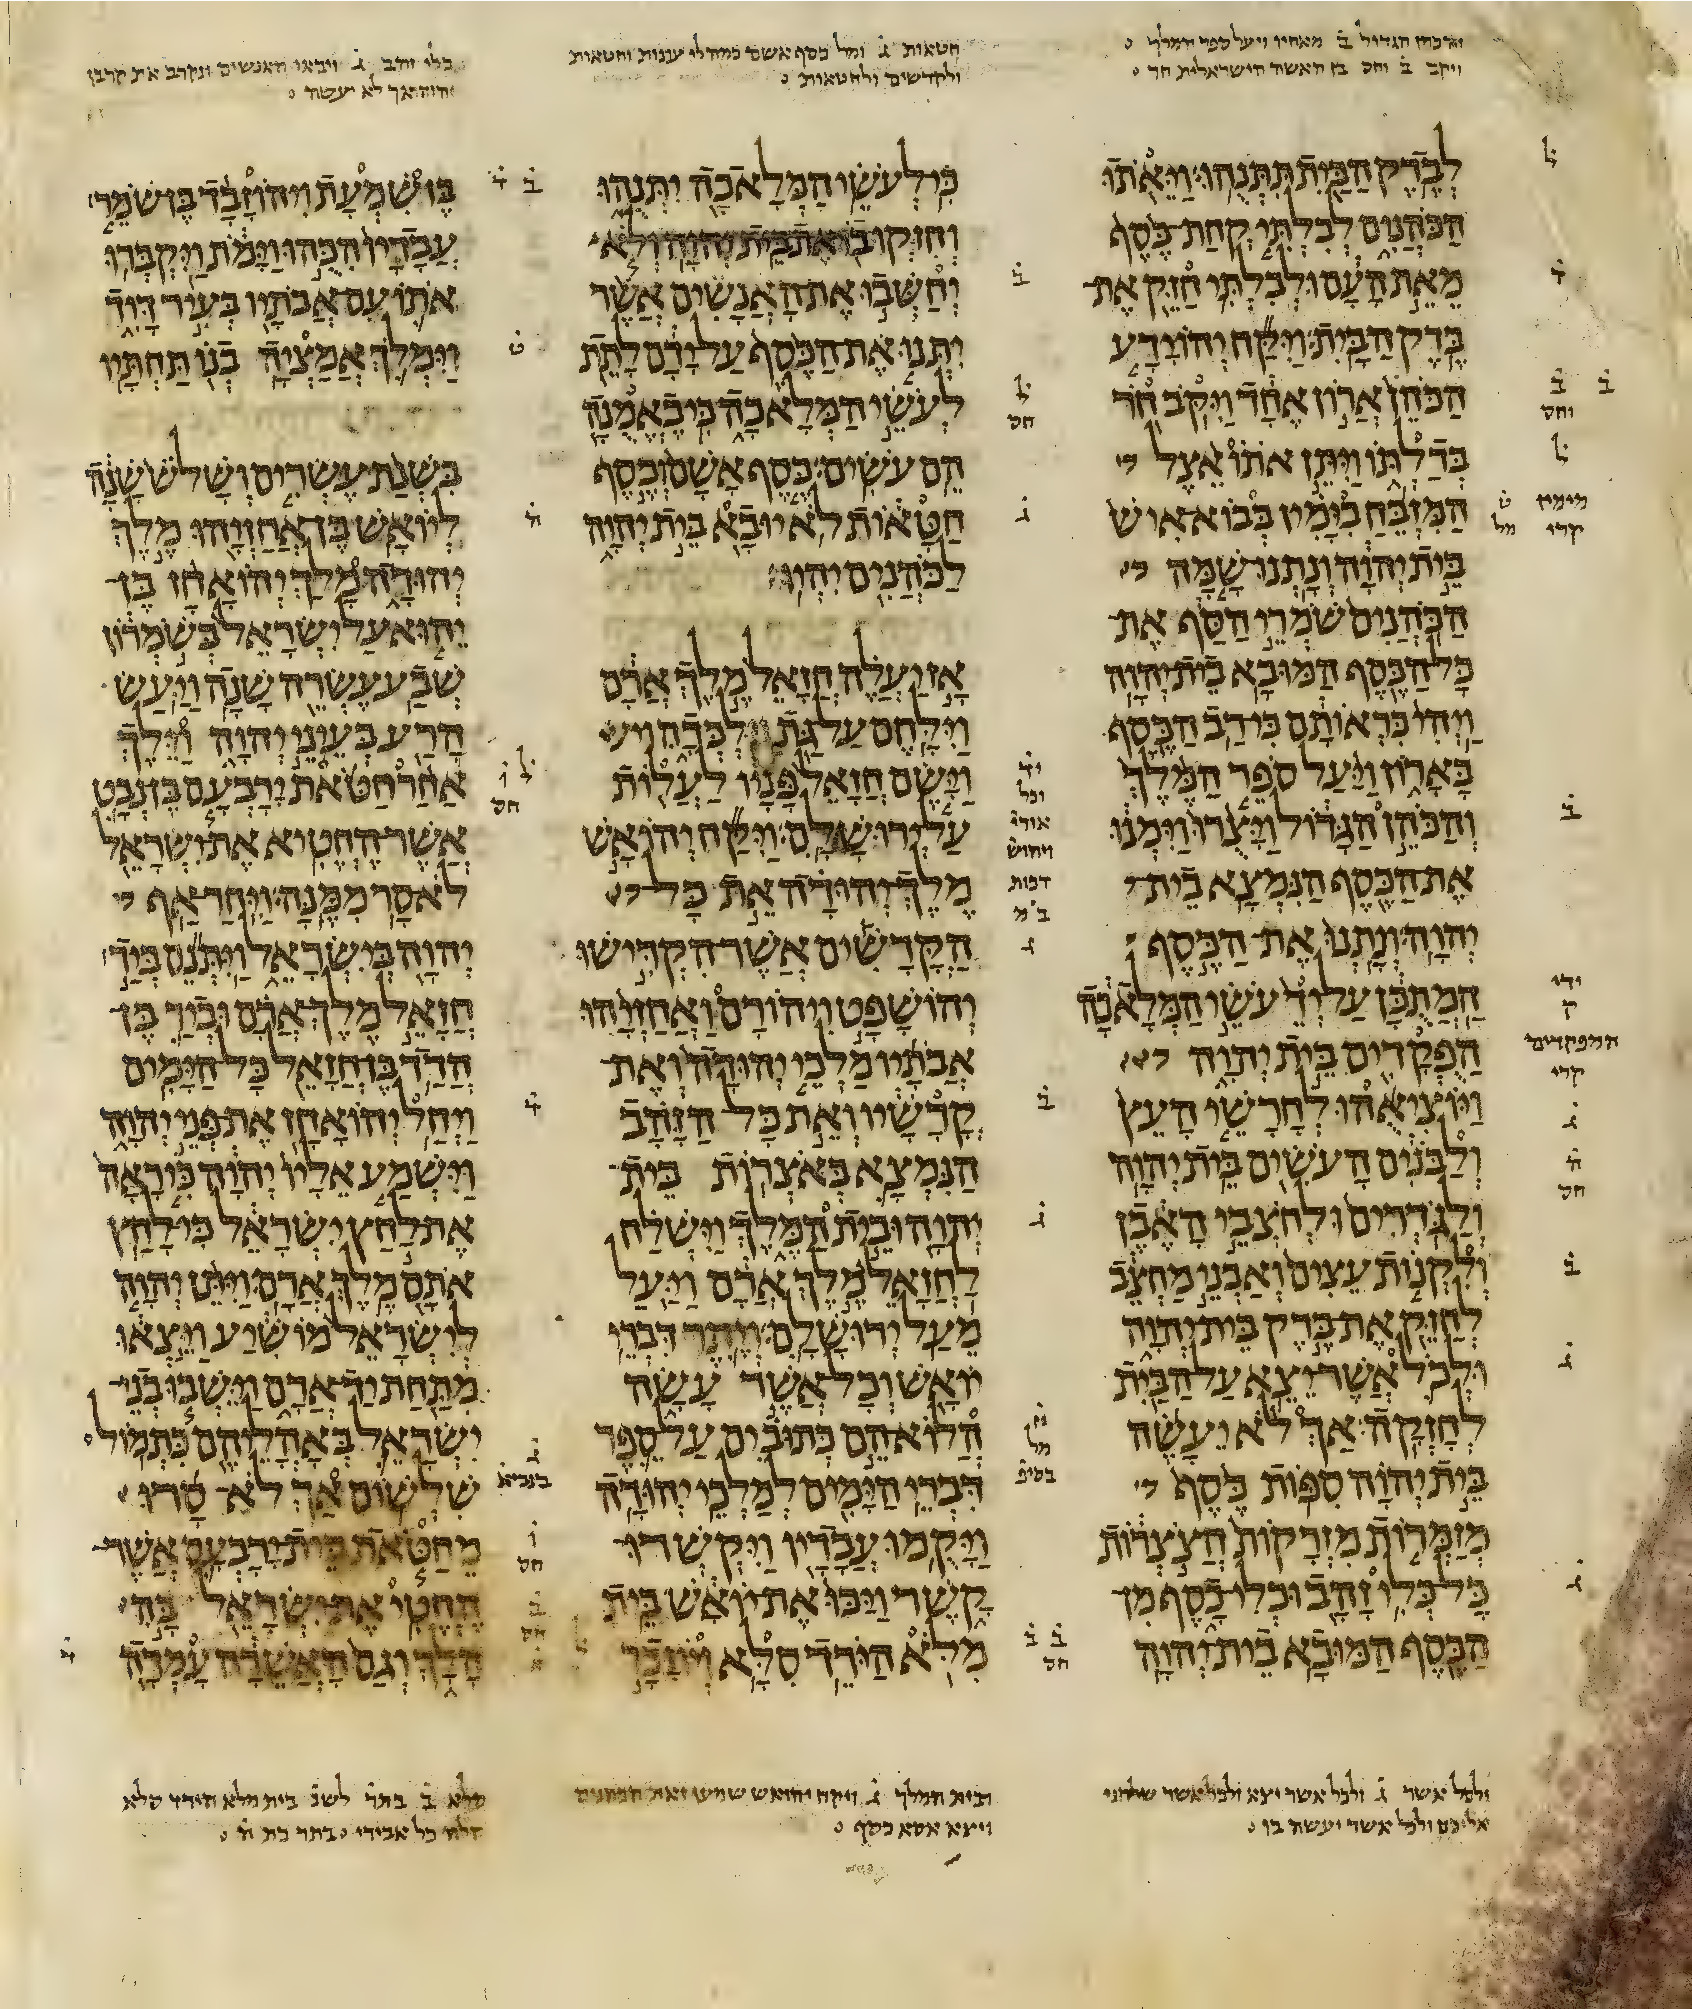 והכהן הגדול ב מאחיו ויעל ספר המלך
ויקב ב וחס בן האשה הישראלית חר
חטאות ג ומל כסף אשם וחטאות
ולקדשים ולחטאות
כלי זהב ג ויבאו האנשים ונקרב את קרבן
יהוה אך לא יעשה
לבדק הבית תתנהו ויאתו
הכהנים לבלתי קחת כסף
מאת העם ולבלתי חזק את
בדק הבית ויקח יהוידע
הכהן ארון אחד ויקב חר
בדלתו ויתן אתו אצל
המזבח בימין בבוא איש
בית יהוה ונתנו שמה
הכהנים שמרי הסף את
כל הכסף המובא בית יהוה
ויהי כראותם כי רב הכסף
בארון ויעל ספר המלך
והכהן הגדול ויצרו וימנו
את הכסף הנמצא בית
יהוה ונתנו את הכסף
המתכן על יד עשי המלאכה
הפקדים בית יהוה
ויוציאהו לחרשי העץ
ולבנים העשים בית יהוה
ולגדרים ולחצבי האבן
ולקנות עצים ואבני מחצב
לחזק את בדק בית יהוה
ולכל אשר יצא על הבית
לחזקה אך לא יעשה
בית יהוה ספות כסף
מזמרות מזרקות חצצרות
כל כלי זהב וכלי כסף מן
הכסף המובא בית יהוה
כי לעשי המלאכה יתנהו
וחזקו בו את בית יהוה ולא
יחשבו את האנשים אשר
יתנו את הכסף על ידם לתת
לעשי המלאכה כי באמנה
הם עשים כסף אשם וכסף
חטאות לא יובא בית יהוה
לכהנים יהיו
אז יעלה חזאל מלך ארם
וילחם על גת וילכדה וישם
וישם חזאל פניו לעלות
על ירושלם ויקח יהואש
מלך יהודה את כל
הקדשים אשר הקדישו
יהושפט ויהורם ואחזיהו
אבתיו מלכי יהודה ואת
קדשיו ואת כל הזהב
הנמצא באצרות בית
יהוה ובית המלך וישלח
לחזאל מלך ארם ויעל
מעל ירושלם ויתר דברי
יואש וכל אשר עשה
הלוא הם כתובים על ספר
דברי הימים למלכי יהודה
ויקמו עבדיו ויקשרו
קשר ויכו את יואש בית
מלא היורד סלא ויוזבד
בן שמעת ויהוזבד בן שמר
עבדיו הכהו וימת ויקברו
אתו עם אבתיו בעיר דוד
וימלך אמציה בנו תחתיו
בשנת עשרים ושלש שנה
ליואש בן אחזיהו מלך
יהודה מלך יהואחז בן
יהוא על ישראל בשמרון
שבע עשרה שנה ויעש
הרע בעיני יהוה וילך
אחר חטאת ירבעם בן נבט
אשר החטיא את ישראל
לא סר ממנה ויחר אף
יהוה בישראל ויתנם ביד
חזאל מלך ארם וביד בן
הדד בן חזאל כל הימים
ויחל יהואחז את פני יהוה
וישמע אליו יהוה כי ראה
את לחץ ישראל כי לחץ
אתם מלך ארם ויתן יהוה
לישראל מושיע ויצאו
מתחת יד ארם וישבו בני
ישראל באהליהם כתמול
שלשום אך לא סרו
מחטאת בית ירבעם אשר
החטי את ישראל בה
הלך וגם האשרה עמדה
ולכל אשר ג ולכל אשר יצא ולכל אשר שלחני
אליכם ולכל אשר יעשה בו
ובית המלך ג ויקח יהואש שמעו זאת הכהנים
ויצא אסא כסף
מלא ב בתר לשנ בית מלא היורד סלא
סלה כל אבירי בתר בת ח